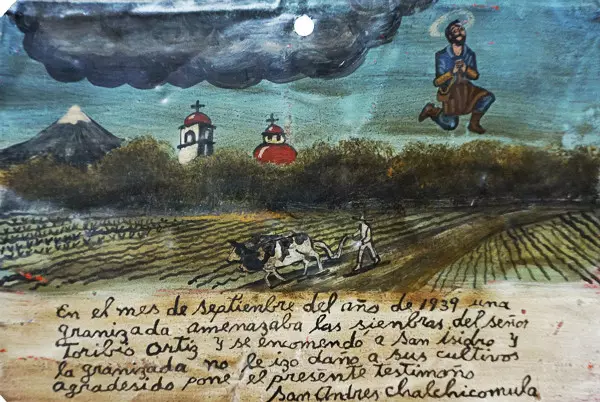 En el mes de septienbre del año de 1939 una
granizada amenazaba las sienbras del señor
Toribio Ortiz y se encomendó a San Isidro y
la granizada no le izo daño a sus cultivos
agradesido pone el presente testimoño
San Andres Chalchicomula